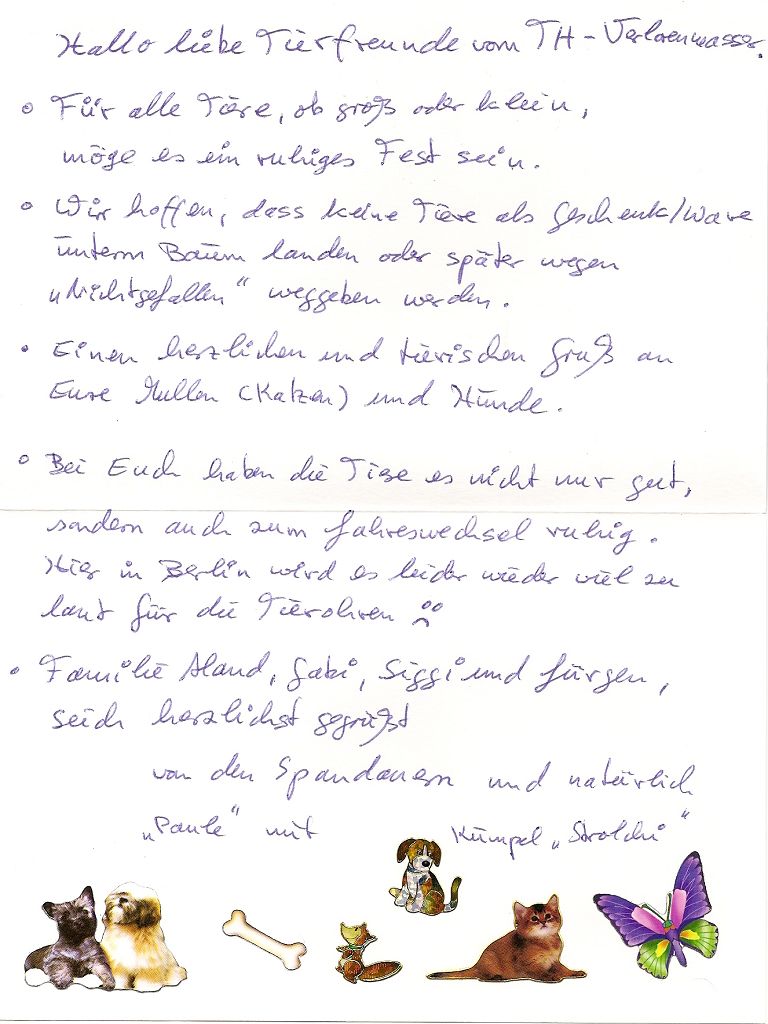 Hallo liebe Tierfreunde vom TH-Verlorenwasser.
o Für alle Tiere, ob groß oder klein,
möge es ein ruhiges Fest sein.
o Wir hoffen, dass keine Tiere als Geschenk/Ware
unterm Baum landen oder später wegen
„Nichtgefallen“ weggeben werden.
• Einen herzlichen und tierischen Gruß an
Eure Mullen (Katzen) und Hunde.
o Bei Euch haben die Tiere es nicht nur gut,
sondern auch zum Jahreswechsel ruhig.
Hier in Berlin wird es leider wieder viel zu
laut für die Tierohren ☹
• Familie Aland, Gabi, Siggi und Jürgen,
seid herzlichst gegrüßt
von den Spandauern und natürlich
„Paule“ mit Kumpel „Strolchi“